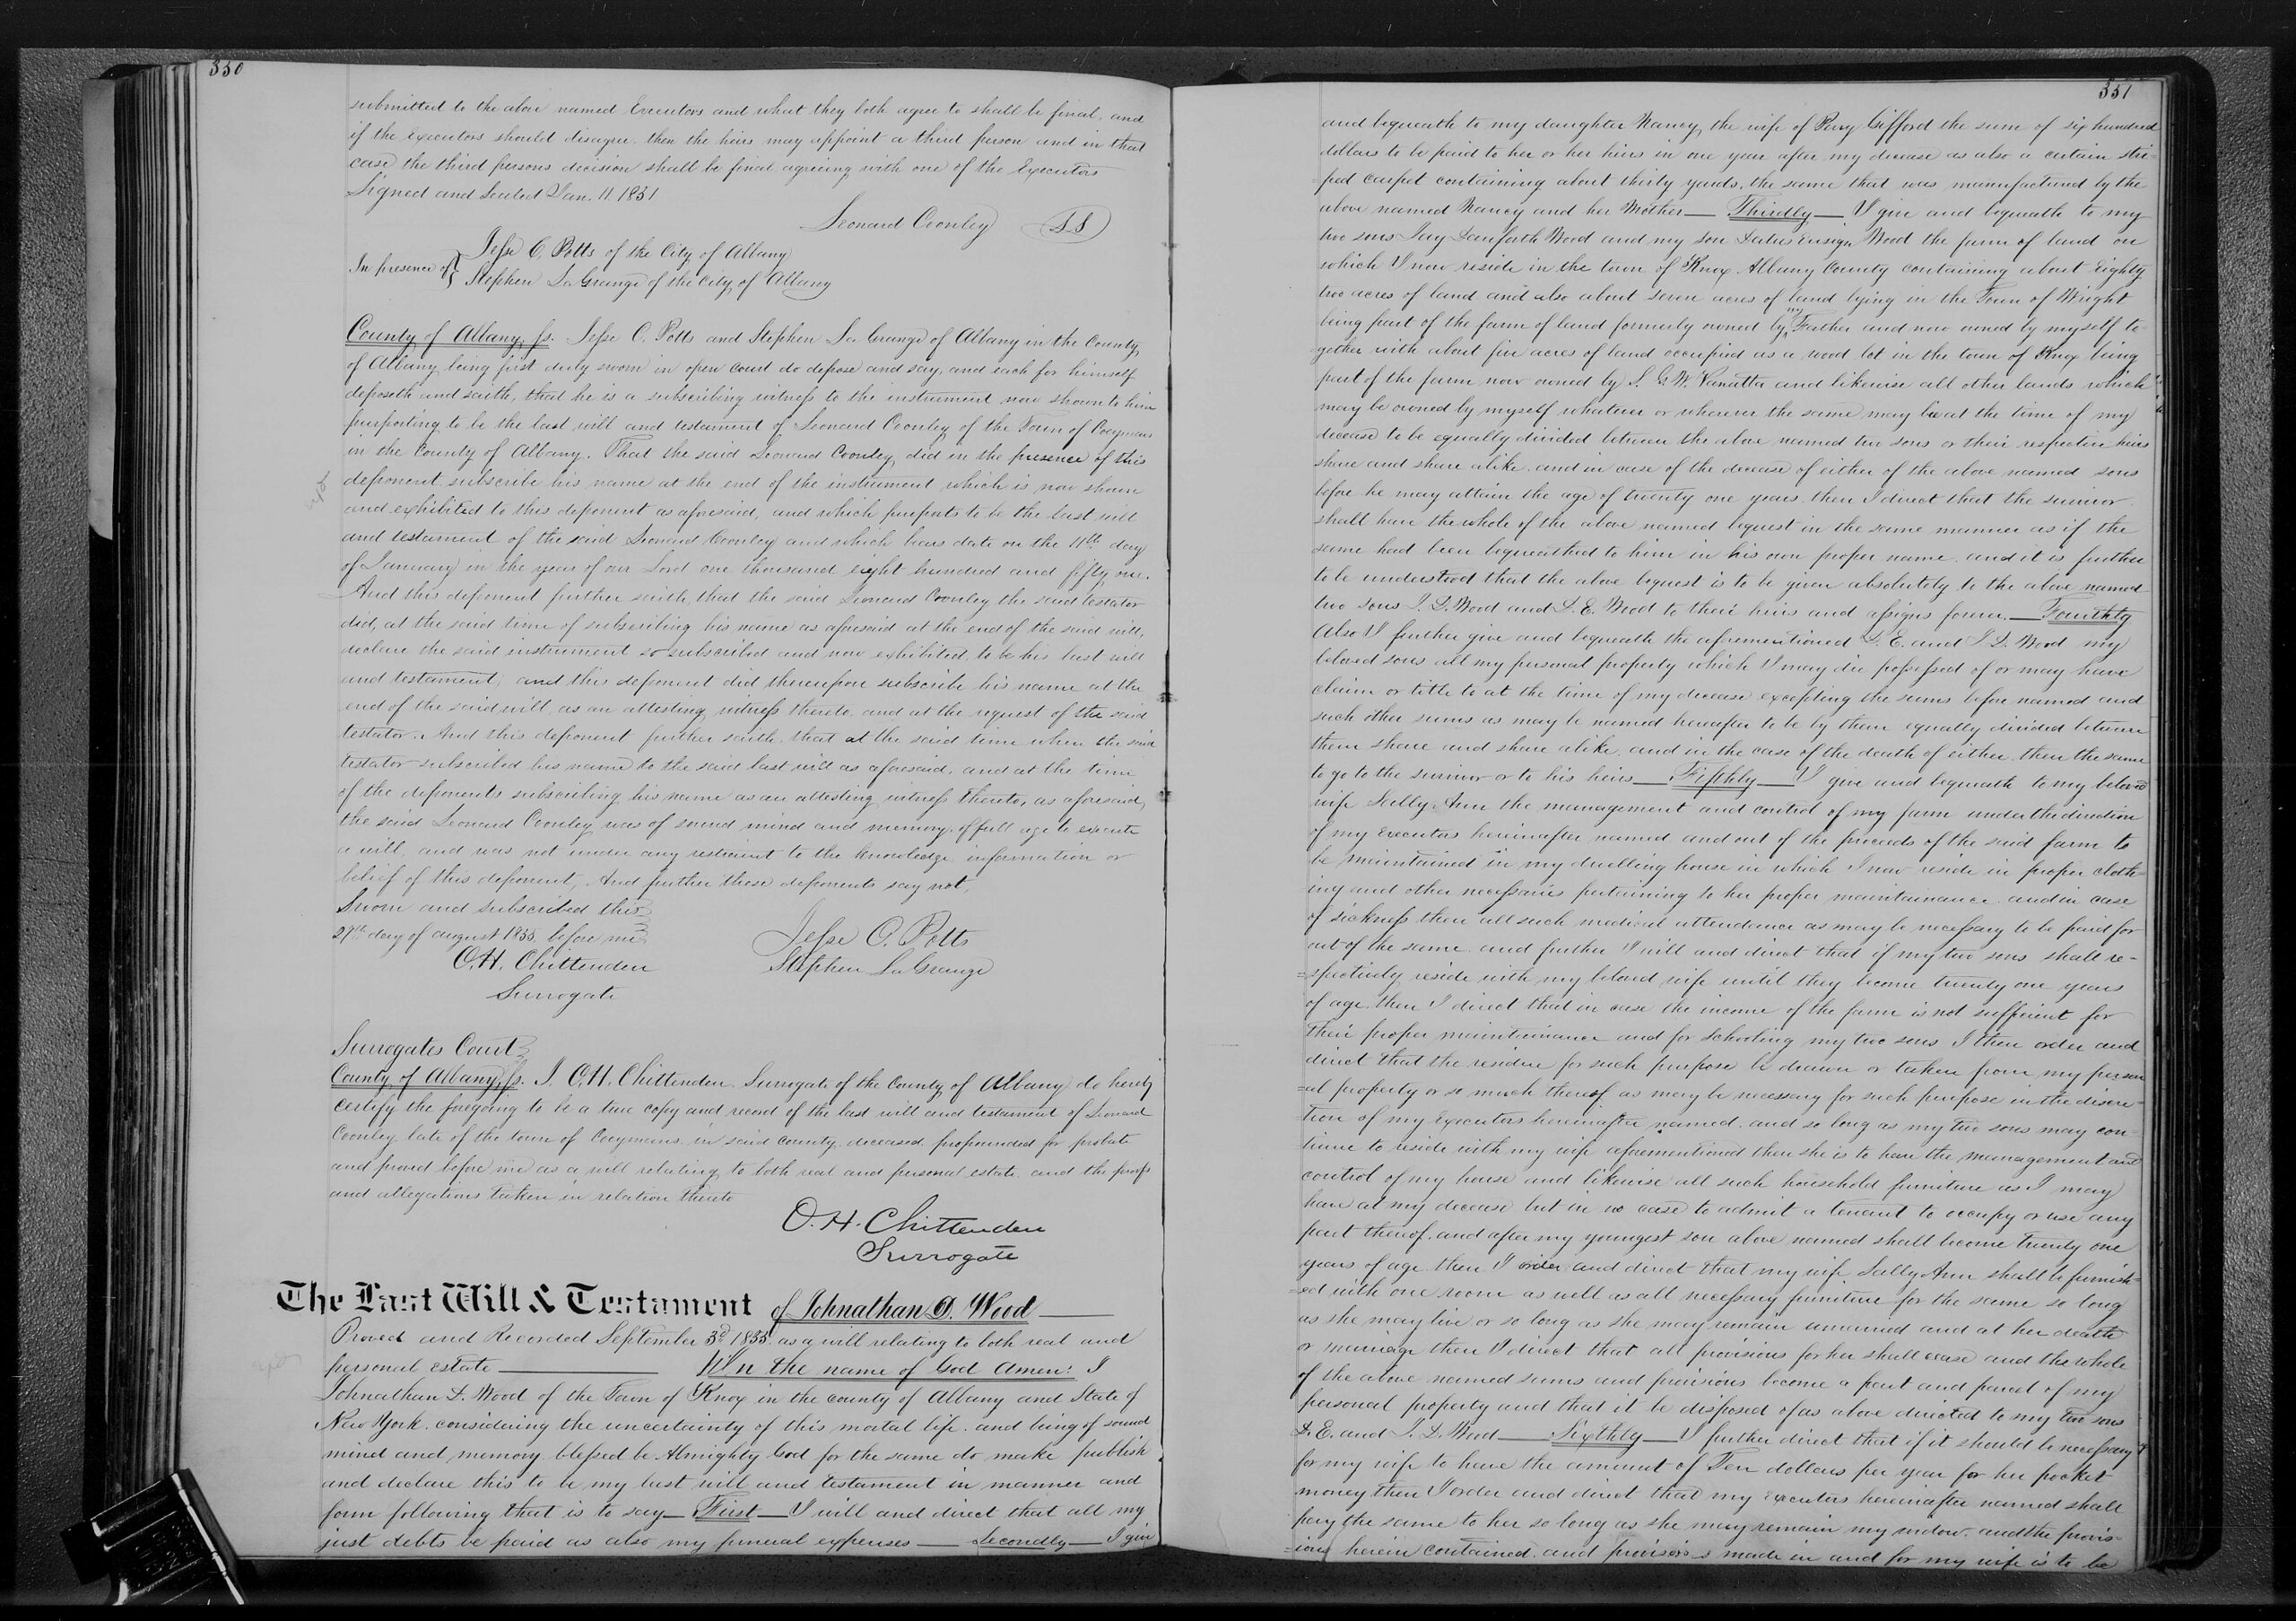 330
submitted to the above named Executors and what they both agree to shall be final, and
if the executors should disagree then the heirs may appoint a third person and in that
case the third persons decision shall be final agreeing with one of the Executors
Signed and Sealed Jan. 11. 1851
Leonard Coonley L.S
In presence of
Jesse C. Potts of the City of Albany
Stephen La Grange of the City of Albany
County of Albany, ss. Jesse C. Potts and Stephen La Grange of Albany in the County
of Albany being first duly sworn in open court do depose and say, and each for himself
deposeth and saith, that he is a subscribing witness to the instrument now shown to him
purporting to be the last will and testament of Leonard Coonley of the Town of Coeymans
in the County of Albany. That the said Leonard Coonley did in the presence of this
deponent, subscribe his name at the end of the instrument which is now shown
and exhibited to this deponent as aforesaid, and which purports to be the last will
and testament of the said Leonard Coonley and which bears date on the 11th day
of January in the year of our Lord one thousand eight hundred and fifty one.
And this deponent further saith, that the said Leonard Coonley the said testator
did, at the said time of subscribing his name as aforesaid at the end of the said will,
declare the said instrument so subscribed and now exhibited, to be his last will
and testament, and this deponent did thereupon subscribe his name at the
end of the said will, as an attesting witness thereto, and at the request of the said
testator. And this deponent further saith, that at the said time when the said
testator subscribed his name to the said last will as aforesaid, and at the time
of the deponents subscribing his name as an attesting witness thereto, as aforesaid,
the said Leonard Coonley was of sound mind and memory, of full age to execute
a will, and was not under any restraint to the knowledge, information or
belief of this deponent, And further these deponents say not,
Sworn and subscribed this
29th day of august 1855 before me
O.H. Chittenden
Surrogate
Jesse C. Potts
Stephen La Grange
Surrogates Court
County of Albany, ss. I, O.H. Chittenden Surrogate of the County of Albany do hereby
certify the foregoing to be a true copy and record of the last will and testament of Leonard
Coonley late of the town of Coeymans in said county, deceased, propounded for probate
and proved before me as a will relating to both real and personal estate, and the proofs
and allegations taken in relation thereto
O.H. Chittenden
Surrogate
The Last Will & Testament of Johnathan D. Wood
Proved and Recorded September 3d 1855 as a will relating to both real and
personal estate In the name of God Amen: I
Johnathan D. Wood of the Town of Knox in the county of Albany and State of
New York, considering the uncertainty of this mortal life, and being of sound
mind and memory blessed be Almighty God for the same do make publish
and declare this to be my last will and testament in manner and
form following that is to say First I will and direct that all my
just debts be paid as also my funeral expenses Secondly I give
331
and bequeath to my daughter Nancy, the wife of Perry Gifford the sum of six hundred
dollars to be paid to her or her heirs in one year after my decease as also a certain stri-
=ped carpet containing about thirty yards, the same that was manufactured by the
above named Nancy and her Mother Thirdly I give and bequeath to my
two sons Jay Danforth Wood and my son Datus Ensign Wood the farm of land on
which I now reside in the town of Knox Albany County containing about Eighty
two acres of land and also about seven acres of land lying in the Town of Wright
being part of the farm of land formerly owned by my Father and now owned by myself to-
gether with about five acres of land occupied as a wood lot in the town of Knox being
part of the farm now owned by J. G. W. Vanatta and likewise all other lands which
may be owned by myself whatever or wherever the same may be at the time of my
decease to be equally divided between the above named two sons or their respective heirs
share and share alike, and in case of the decease of either of the above named sons
before he may attain the age of twenty one years, then I direct that the survivor
shall have the whole of the above named bequest in the same manner as if the
same had been bequeathed to him in his own proper name, and it is further
to be understood that the above bequest is to be given absolutely to the above named
two sons J. D. Wood and D. E. Wood to their heirs and assigns forever. Fourthly
Also I further give and bequeath the aforementioned D. E. and J. D. Wood my
beloved sons all my personal property which I may die possessed of or may have
claim or title to at the time of my decease excepting the sums before named and
such other sums as may be named hereafter to be by them equally divided between
them share and share alike, and in the case of the death of either, then the same
to go to the survivor or to his heirs Fifthly I give and bequeath to my beloved
wife Sally Ann the management and control of my farm under the direction
of my Executors hereinafter named and out of the proceeds of the said farm to
be maintained in my dwelling house in which I now reside in proper cloth-
ing and other necessaries pertaining to her proper maintainance and in case
of sickness then all such medical attendance as may be necessary to be paid for
out of the same, and further I will and direct that if my two sons shall re-
=spectively reside with my beloved wife until they become twenty one years
of age, then I direct that in case the income of the farm is not sufficient for
their proper maintainance and for schooling my two sons I then order and
direct that the residue for such purpose be drawn or taken from my person
=al property or so much thereof as may be necessary for such purpose in the discre-
=tion of my Executors hereinafter named, and so long as my two sons may con-
tinue to reside with my wife aforementioned then she is to have the management and
control of my house and likewise all such household furniture as I may
have at my decease but in no case to admit a tenant to occupy or use any
part thereof, and after my youngest son above named shall become twenty one
years of age then I order and direct that my wife Sally Ann shall be furnish-
=ed with one room as well as all necessary furniture for the same so long
as she may live or so long as she may remain unmarried and at her death
or marriage then I direct that all provisions for her shall cease and the whole
of the above named sums and provisions become a part and parcel of my
personal property and that it be disposed of as above directed to my two sons
D. E. and J. D. Wood Sixthly I further direct that if it should be necessary
for my wife to have the amount of Ten dollars per year for her pocket
money then I order and direct that my executors hereinafter named shall
pay the same to her so long as she may remain my widow, and the provis-
=ions herein contained, and provisions made in and for my wife is to be